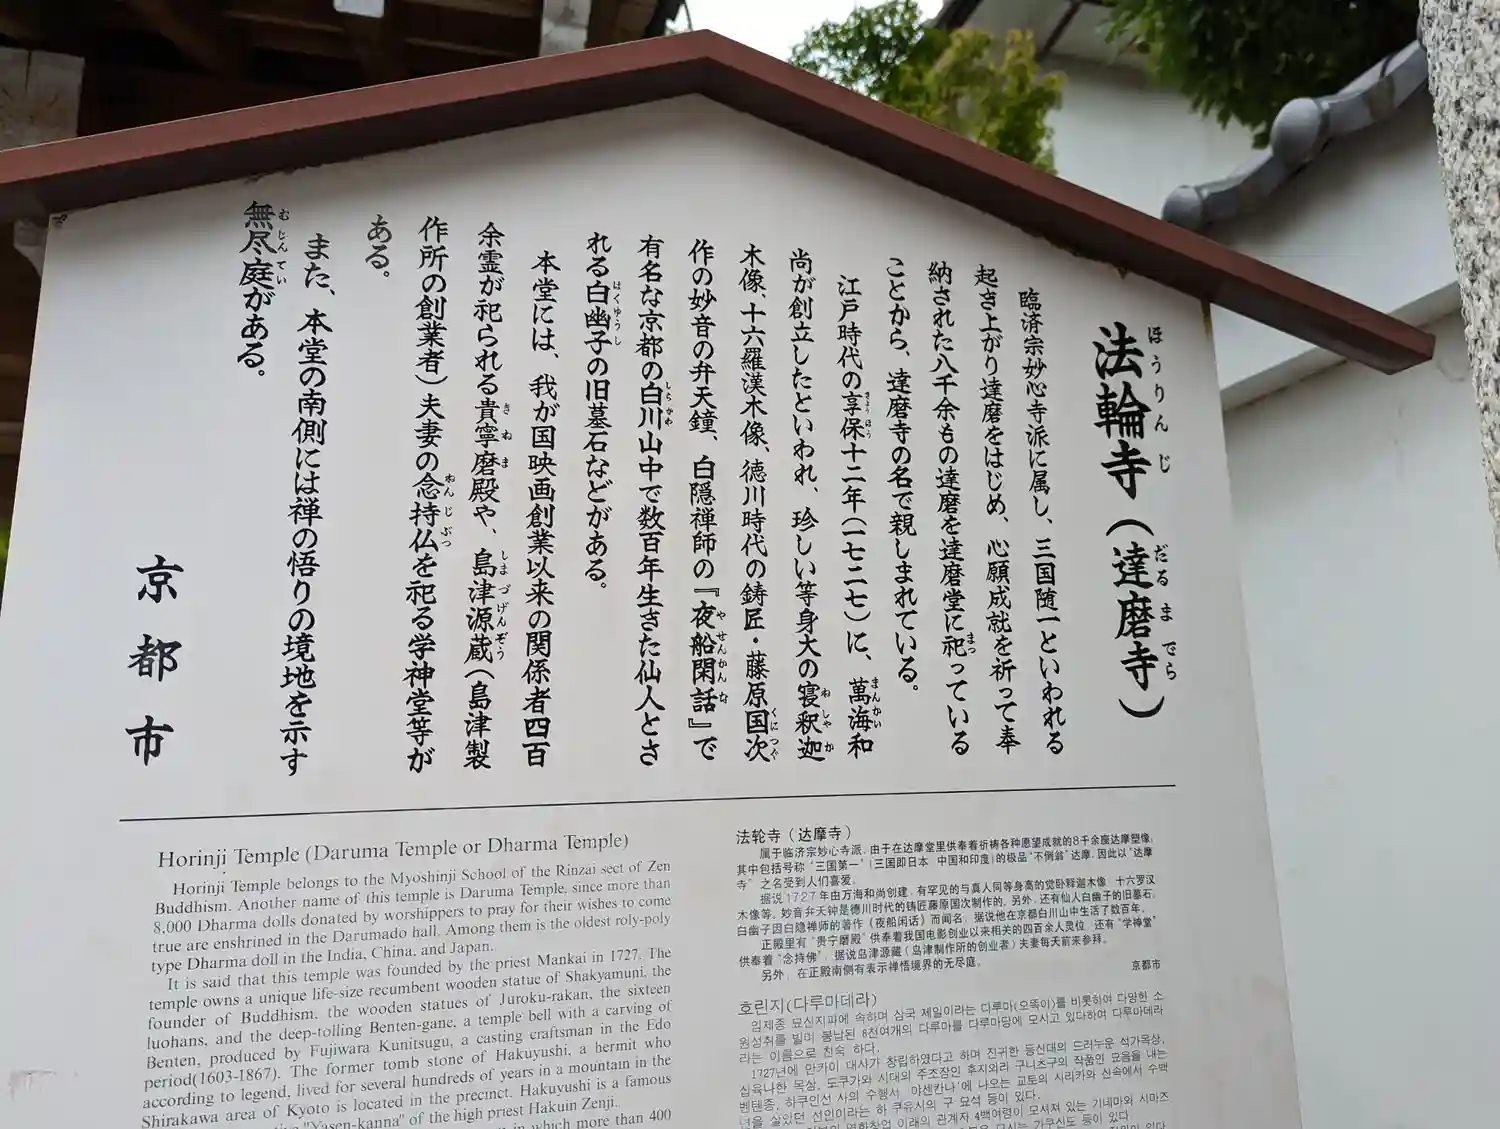 法輪寺（達磨寺）
ほうりんじ
だるまでら
臨済宗妙心寺派に属し、三国随一といわれる
起き上がり達磨をはじめ、心願成就を祈って奉
納された八千余もの達磨を達磨堂に祀っている
まつ
ことから、達磨寺の名で親しまれている。
江戸時代の享保十二年（一七二七）に、萬海和
きょうほう
まんかい
尚が創立したといわれ、珍しい等身大の寝釈迦
ねしゃか
木像、十六羅漢木像、徳川時代の鋳匠・藤原国次
くにつぐ
作の妙音の弁天鐘、白隠禅師の『夜船閑話』で
やせんかんな
有名な京都の白川山中で数百年生きた仙人とさ
しらかわ
れる白幽子の旧墓石などがある。
はくゆうし
本堂には、我が国映画創業以来の関係者四百
余霊が祀られる貴寧磨殿や、島津源蔵（島津製
きねま
しまづげんぞう
作所の創業者）夫妻の念持仏を祀る学神堂等が
ねんじぶつ
ある。
また、本堂の南側には禅の悟りの境地を示す
無尽庭がある。
むじんてい
京都市
Horinji Temple (Daruma Temple or Dharma Temple)
Horinji Temple belongs to the Myoshinji School of the Rinzai sect of Zen
Buddhism. Another name of this temple is Daruma Temple, since more than
8,000 Dharma dolls donated by worshippers to pray for their wishes to come
true are enshrined in the Darumado hall. Among them is the oldest roly-poly
type Dharma doll in the India, China, and Japan.
It is said that this temple was founded by the priest Mankai in 1727. The
temple owns a unique life-size recumbent wooden statue of Shakyamuni, the
founder of Buddhism, the wooden statues of Juroku-rakan, the sixteen
luohans, and the deep-tolling Benten-gane, a temple bell with a carving of
Benten, produced by Fujiwara Kunitsugu, a casting craftsman in the Edo
period(1603-1867). The former tomb stone of Hakuyushi, a hermit who
according to legend, lived for several hundreds of years in a mountain in the
Shirakawa area of Kyoto is located in the precinct. Hakuyushi is a famous
"Yasen-kanna" of the high priest Hakuin Zenji.
in which more than 400
法轮寺（达摩寺）
属于临济宗妙心寺派，由于在达摩堂里供奉着祈祷各种愿望成就的8千余座达摩塑像，
其中包括号称"三国第一"（三国即日本 中国和印度）的极品"不倒翁"达摩，因此以"达摩
寺"之名受到人们喜爱。
据说1727年由万海和尚创建，有罕见的与真人同等身高的觉卧释迦木像 十六罗汉
木像等，妙音弁天钟是德川时代的铸匠藤原国次制作的。另外，还有仙人白幽子的旧墓石，
白幽子因白隐禅师的著作《夜船闲话》而闻名，据说他在京都白川山中生活了数百年。
正殿里有"贵宁磨殿"供奉着我国电影创业以来相关的四百余人灵位，还有"学神堂"
供奉着"念持佛"，据说岛津源藏（岛津制作所的创业者）夫妻每天前来参拜。
另外，在正殿南侧有表示禅悟境界的无尽庭。
京都市
호린지(다루마데라)
임제종 묘신지파에 속하며 삼국 제일이라는 다루마(오뚝이)를 비롯하여 다양한 소
원성취를 빌며 봉납된 8천여개의 다루마를 다루마당에 모시고 있다하여 다루마데라
라는 이름으로 친숙 하다.
1727년에 만카이 대사가 창립하였다고 하며 진귀한 등신대의 드러누운 석가목상,
십육나한 목상, 도쿠가와 시대의 주조장인 후지와라 구니츠구의 작품인 묘음을 내는
벤텐종, 하쿠인선 사의 수행서 '야센칸나'에 나오는 교토의 시라카와 산속에서 수백
년을 살았던 선인이라는 하 쿠유시의 구 묘석 등이 있다.
이래의 관계자 4백여령이 모셔져 있는 기네마와 시마즈